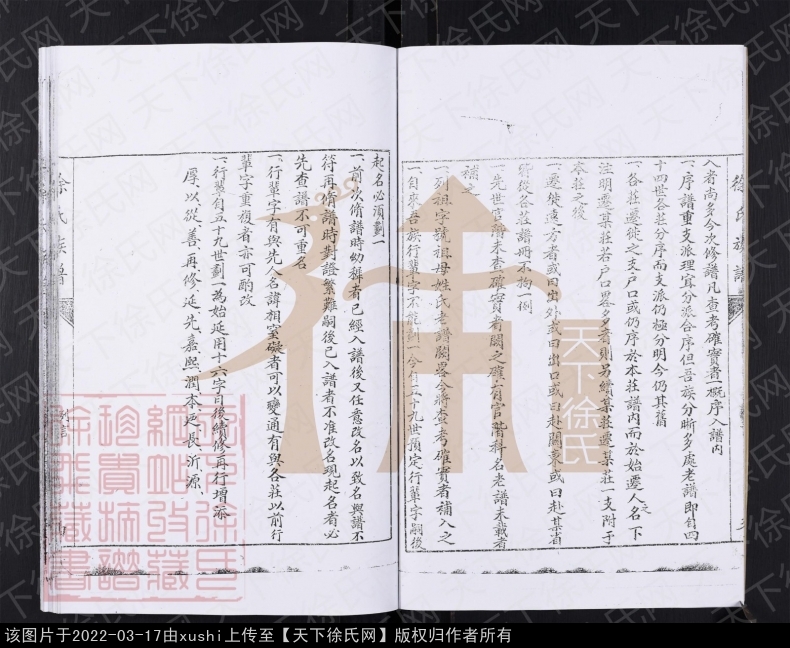 徐氏族譜
入者尚多今次修譜凡查考確實者一概序入譜內
一、序譜重支派理宜分派合序但吾族分晰多處老譜即自四
十四世各莊分序而支派仍極分明今仍其舊
一、各莊遷徙之支户口或仍序於本莊譜內而於始遷人名之下
注明遷某莊若户口眾多者則另續某莊遷某莊一支附于
本莊之後
一、遷徙遠方者或曰出外或曰出口或曰赴關東或曰赴某省
將從各莊譜冊不拘一例
一、先世官諱未查確實者闕之確有官階科名老譜未載者
補之
一、列祖字號祖母姓氏老譜闕畧今將查考確實者補入之
一、自來吾族行輩字不能劃一今自五十九世預定行輩字嗣後
起名必須劃一
一、前次脩譜時幼稱者已經入譜後又任意改名以致名與譜不
符再脩譜時對證繁難嗣後已入譜者不准改名現起名者必
先查譜不可重名
一、行輩字有與先人名諱相窒礙者可以變通有與各莊以前行
輩字重複者亦可酌改
一、行輩自五十九世劃一為始延用十六字日後續修再行增添
厚、以、從、善、再、修、延、先、嘉、熙、潤、本、延、長、沂、源、
徐氏族譜
天下徐氏
天下徐氏网
该图片于2022-03-17由xushi上传至【天下徐氏网】版权归作者所有